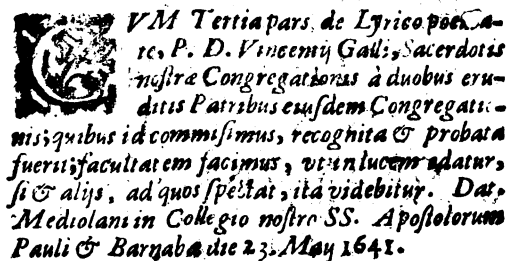 CVM Tertia pars, de Lyrico poemate,
P. D. Vincentij Galli, Sacerdotis
nostræ Congregationis à duobus eruditis
Patribus eiusdem Congregationis,
quibus id commisimus, recognita & probata
fuerit; facultatem facimus, vt in lucem edatur,
si & alijs, ad quos spectat, ita videbitur. Dat.
Mediolani in Collegio nostro SS. Apostolorum
Pauli & Barnabæ die 23. Maij 1641.